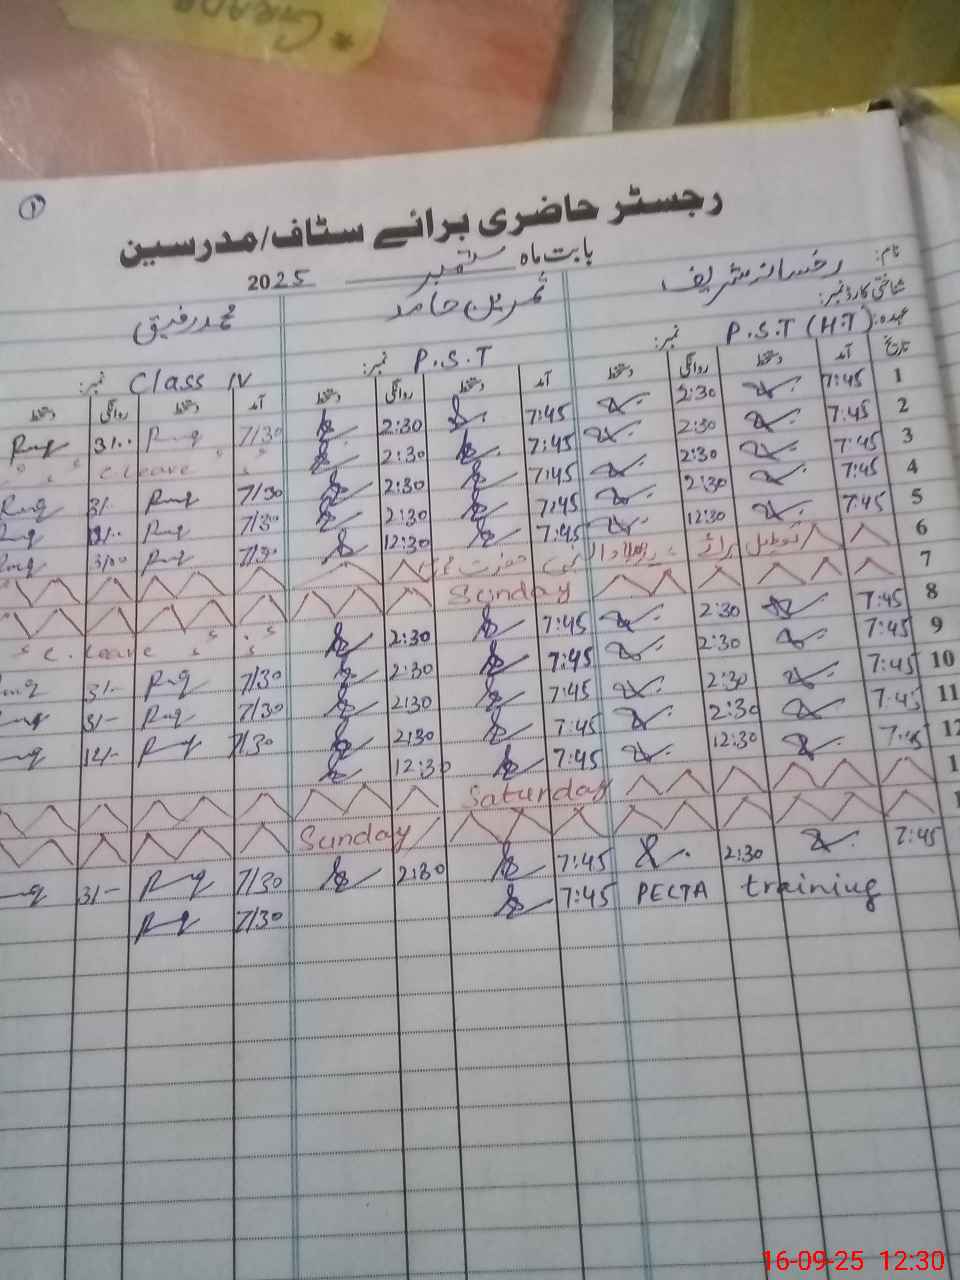 * GRADE
1
رجسٹر حاضری برائے سٹاف/مدرسین
بابت ماہ ستمبر 2025
نام: رخسانہ شریف ثمرین حامد محمد رفیق
شناختی کارڈ نمبر:
عہدہ: P.S.T (H.T) نمبر: P.S.T نمبر: Class IV نمبر:
تاریخ آمد دستخط روانگی دستخط آمد دستخط روانگی دستخط آمد دستخط روانگی دستخط
1 7:45 2:30 7:45 2:30 7/30 3/..
2 7:45 2:30 7:45 2:30 C.Leave
3 7:45 2:30 7:45 2:30 7/30 3/-
4 7:45 2:30 7:45 2:30 7/30
5 7:45 12:30 7:45 12:30 7/30
6 تعطیل برائے
7 Sunday
8 7:45 2:30 7:45 2:30 C.Leave
9 7:45 2:30 7:45 2:30 7/30 3/-
10 7:45 2:30 7:45 2:30 7/30 3/-
11 7:45 2:30 7:45 2:30 7/30 12/-
12 7:45 12:30 7:45 12:30
1 Saturday
1 Sunday
7:45 2:30 7:45 2:30 7/30 3/-
PECTA training 7:45 7/30
16-09-25 12:30